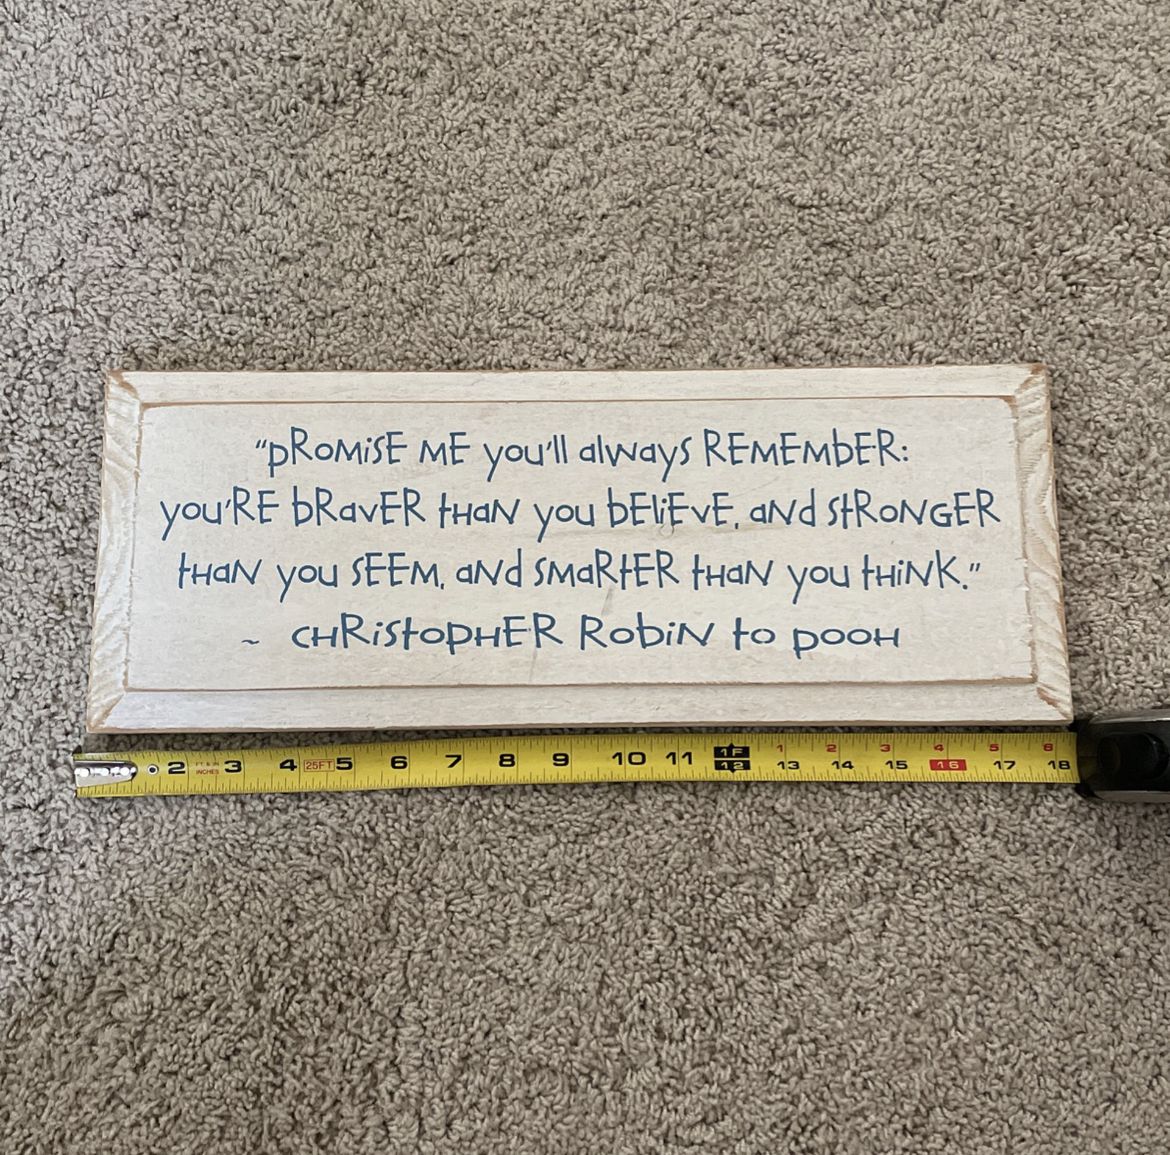 "PROMISE ME you'll always REMEMbER:
you'RE bRavER tHaN you bEliEvE, aNd stRONGER
tHaN you SEEM, aNd SMaRtER tHaN you tHiNK."
~ CHRistopHER RobiN to pooH
1F 1 2 3 4 5 6
2 FT & IN INCHES 3 4 25FT 5 6 7 8 9 10 11 12 13 14 15 16 17 18